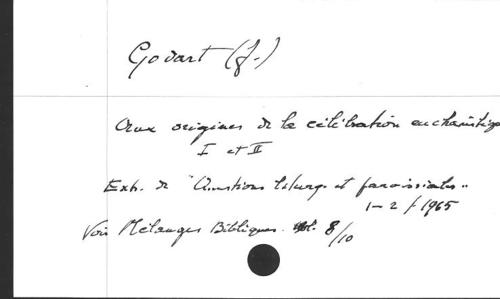 Godart (J.)
Aux origines de la célébration eucharistique
I et II
Extr. de "Questions liturg. et paroissiales"
1-2/1965
Voir Mélanges Bibliques. vol. 8/10